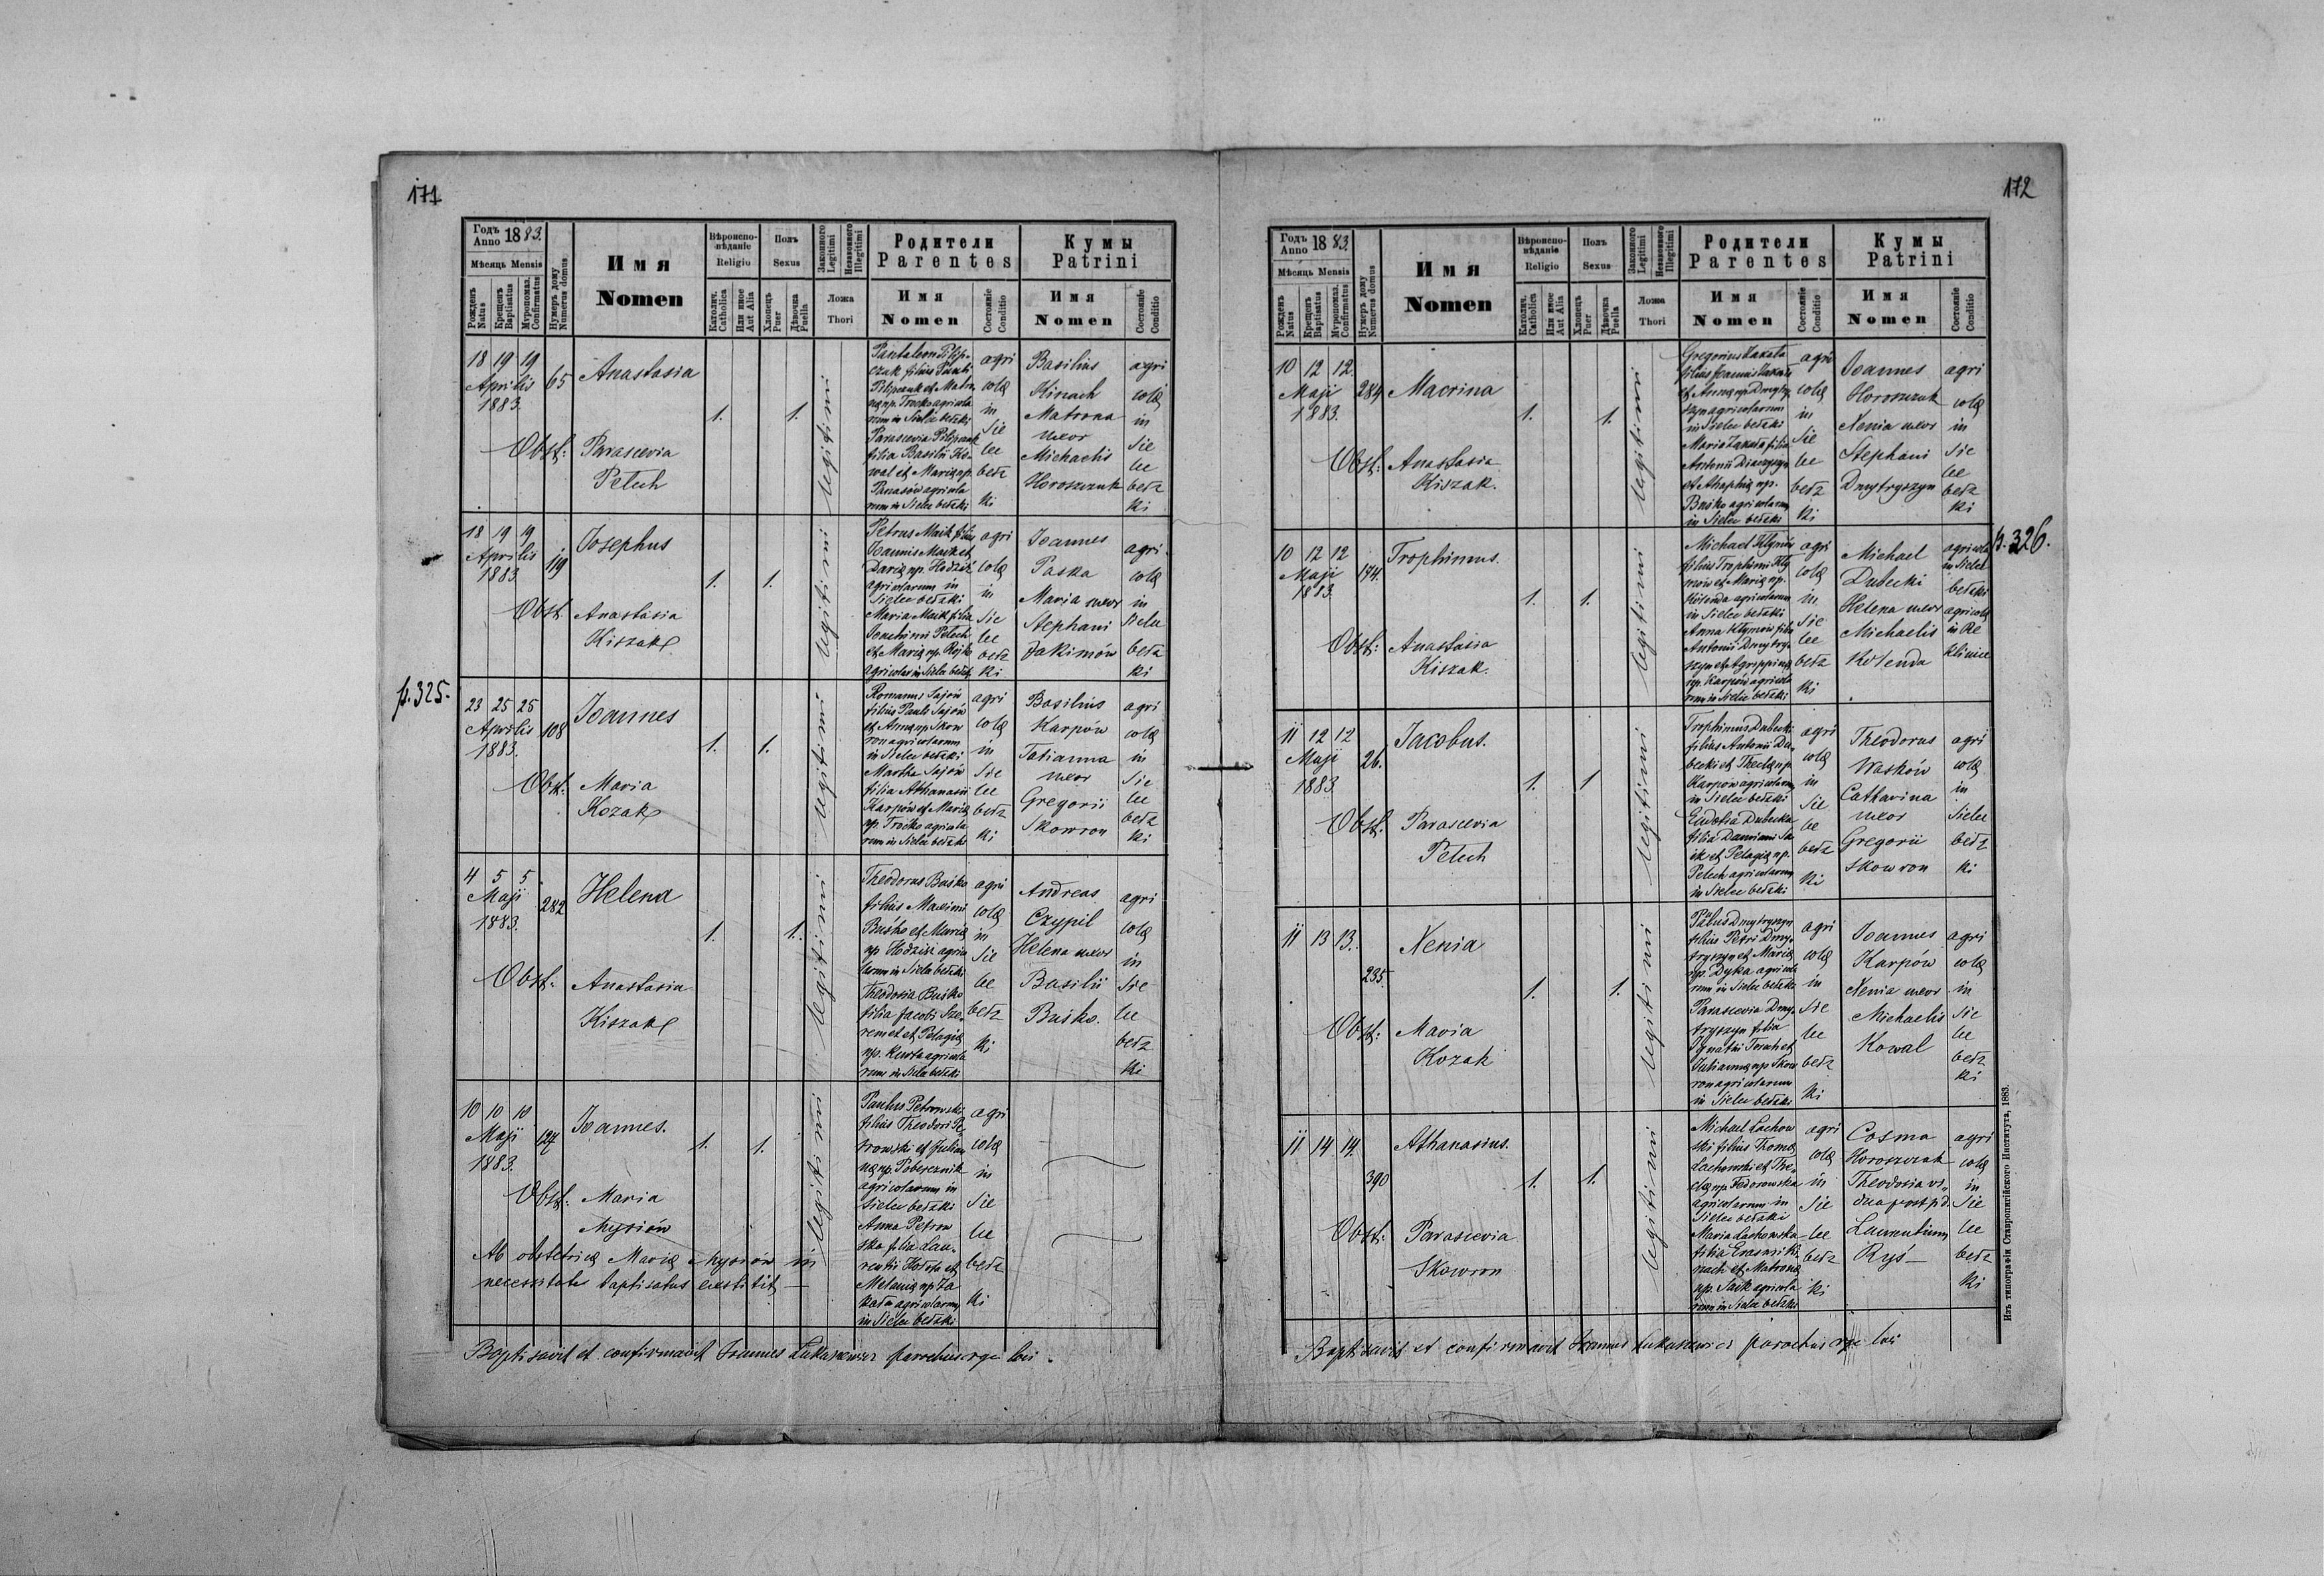 171
Годъ Anno 1883.
Мѣсяць Mensis
Рожденъ Natus
Крещенъ Baptisatus
Мѵропомаз. Confirmatus
Нумеръ дому Numerus domus
Имя
Nomen
Вѣроиспо-
вѣданіе
Religio
Католич. Catholica
Или иное Aut Alia
Полъ
Sexus
Хлопецъ Puer
Дѣвочка Puella
Законного Legitimi
Незаконного Illegitimi
Ложа
Thori
Родители
Parentes
Имя
Nomen
Состояніе Conditio
Кумы
Patrini
Имя
Nomen
Состояніе Conditio
18 19 19
Aprilis
1883.
65
Anastasia
Obst: Parascevia
Petech
1. 1.
legitimi
Pantaleon Pilip-
czak filius Pauli
Pilipczuk et Matro
næ np. Trocko agricola
rum in Sielec bełzki
Parascevia Pilipczuk
filia Basilii Ko-
wal et Mariæ np.
Panasów agricola
rum in Sielec bełzki
agri
colæ
in
Sie
lec
bełz
ki
Basilius
Kinach
Matrona
uxor
Michaelis
Horoszczuk
agri
colæ
in
Sie
lec
bełz
ki
18 19 19
Aprilis
1883.
119
Josephus
Obst. Anastasia
Kiszak
1. 1.
legitimi
Petrus Maik filius
Joannis Maik et
Dariæ np. Hodziź
agricolarum in
Sielec bełzki
Maria Maik filia
Joachimi Petech
et Mariæ np. Rojko
agricolar in Sielec bełzk
agri
colæ
in
Sie
lec
bełz
ki
Joannes
Paska
Maria uxor
Stephani
Jakimów
agri
colæ
in
Sielec
bełz
ki
p. 325.
23 25 25
Aprilis
1883.
108
Joannes
Obst: Maria
Kozak
1. 1.
legitimi
Romanus Sajów
filius Pauli Sajów
et Annæ np. Skow
ron agricolarum
in Sielec bełzki
Martha Sajów
filia Athanasii
Karpów et Mariæ
np. Trocko agricola
rum in Sielec bełzki
agri
colæ
in
Sie
lec
bełz
ki
Basilius
Karpów
Tatianna
uxor
Gregorii
Skowron
agri
colæ
in
Sie
lec
bełz
ki
4 5 5
Maji
1883.
282
Helena
Obst: Anastasia
Kiszak
1. 1.
legitimi
Theodorus Buśko
filius Maximi
Buśko et Mariæ
np Hodziź agrico
larum in Sielec bełzki
Theodosia Buśko
filia Jacobi Sze-
remet et Pelagiæ
np. Kusta agricola
rum in Sielec bełzki
agri
colæ
in
Sie
lec
bełz
ki
Andreas
Czypil
Helena uxor
Basilii
Buśko.
agri
colæ
in
Sie
lec
bełz
ki
10 10 10
Maji
1883.
127
Joannes.
Obst: Maria
Mysiów
Ab obstetrice Mariæ Mysiów in
necessitate baptisatus exstitit —
1. 1.
legitimi
Paulus Petrowski
filius Theodori Pe
trowski et Julian
næ np. Pobereznik
agricolarum in
Sielec bełzki
Anna Petrow
ska filia Lau-
rentii Hołota et
Melaniæ np Za
kała agricolarum
in Sielec bełzki
agri
colæ
in
Sie
lec
bełz
ki
Baptisavit et confirmavit Joannes Lukasiewicz parochus r.g.c. loci.
172
Годъ Anno 1883.
Мѣсяць Mensis
Рожденъ Natus
Крещенъ Baptisatus
Мѵропомаз. Confirmatus
Нумеръ дому Numerus domus
Имя
Nomen
Вѣроиспо-
вѣданіе
Religio
Католич. Catholica
Или иное Aut Alia
Полъ
Sexus
Хлопецъ Puer
Дѣвочка Puella
Законного Legitimi
Незаконного Illegitimi
Ложа
Thori
Родители
Parentes
Имя
Nomen
Состояніе Conditio
Кумы
Patrini
Имя
Nomen
Состояніе Conditio
10 12 12
Maji
1883.
284
Macrina
Obst: Anastasia
Kiszak.
1. 1.
legitimi
Gregorius Zakała
filius Joannis Zakała
et Annæ np Dmytry
szyn agricolarum
in Sielec bełzki
Maria Zakała filia
Antonii Diaczyszyn
et Ahaphiæ np.
Buśko agricolarum
in Sielec bełzki
agri
colæ
in
Sie
lec
bełz
ki
Joannes
Horoszczuk
Xenia uxor
Stephani
Dmytryszyn
agri
colæ
in
Sie
lec
bełz
ki
p. 326.
10 12 12
Maji
1883.
174.
Trophimus.
Obst: Anastasia
Kiszak.
1. 1.
legitimi
Michael Klymów
filius Trophimi Kly
mów et Mariæ np.
Kolenda agricolarum
in Sielec bełzki
Anna Klymów filia
Antonii Dmytry
szyn et Agrippinæ
np. Karpów agricola
rum in Sielec bełzki
agri
colæ
in
Sie
lec
bełz
ki
Michael
Dubecki
Helena uxor
Michaelis
Kolenda
agricola
in Sielec
bełzki
agricolæ
in Re
klinice
11 12 12
Maji
1883.
26.
Jacobus.
Obst: Parascevia
Petech
1. 1
legitimi
Trophimus Dubecki
filius Antonii Du-
becki et Theclæ np
Karpów agricolarum
in Sielec bełzki
Eudokia Dubecka
filia Damiani Sa
ik et Pelagiæ np.
Petech agricolarum
in Sielec bełzki
agri
colæ
in
Sie
lec
bełz
ki
Theodorus
Wasków
Catharina
uxor
Gregorii
Skowron
agri
colæ
in
Sielec
bełz
ki
11 13 13.
235.
Xenia
Obst: Maria
Kozak
1. 1.
legitimi
Paulus Dmytryszyn
filius Petri Dmy-
tryszyn et Mariæ
np. Dyka agricola
rum in Sielec bełzki
Parascevia Dmy-
tryszyn filia
Ignatii Tomch et
Julianæ np Skow
ron agricolarum
in Sielec bełzki
agri
colæ
in
Sie
lec
bełz
ki
Joannes
Karpów
Xenia uxor
Michaelis
Kowal
agri
colæ
in
Sie
lec
bełz
ki
11 14 14.
390
Athanasius.
Obst: Parascevia
Skowron
1. 1.
legitimi
Michael Lachow
ski filius Thomæ
Lachowski et The-
clæ np Fedorowska
agricolarum in
Sielec bełzki
Maria Lachowska
filia Erasmi Ki-
nach et Matronæ
np. Saik agricola
rum in Sielec bełzki
agri
colæ
in
Sie
lec
bełz
ki
Cosma
Horoszczuk
Theodosia vi-
dua post p.d.
Laurentium
Ryś —
agri
colæ
in
Sie
lec
bełz
ki
Baptisavit et confirmavit Joannes Lukasiewicz parochus r.g.c. loci
Изъ типографіи Ставропигійского Института, 1883.